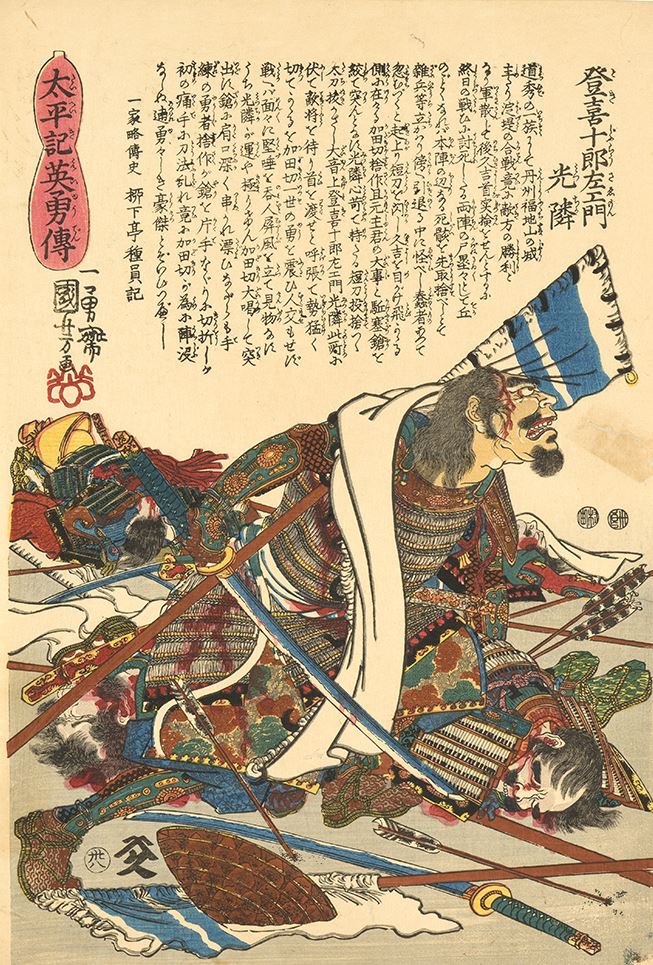 登喜十郎左エ門
光隣
道秀の一族にして丹州福地山の城
主たり池堤の合戦竟に敵方の勝利と
なり軍散じて後久吉首実捡をせんとするに
終日の戦ひに討死したる両陣の尸塁々として丘
のごとくなれば本陣の辺なる死骸を先取捨んとして
雑兵等立かゝり傍へ引退る中に怪しき者あつて
忍びやかに起上り短刀を閃し久吉を目がけ飛かゝる
側に在る加田切捨作且元主君の大事と駈塞鎗を
絞て突んとするに光隣心前く持たる短刀投捨つゝ
太刀抜かざし大音上登喜十郎左エ門光隣此所に
伏て敵将を待り首を渡せと呼張て勢猛く
切てかゝるを加田切一世の勇を震ひ人交もせず
戦へば面々に堅唾を呑人屏風を立て見物なすに
うち光隣が運や極りけん加田切大喝して突
出す鎗に肩口深く串れ漂ひながらも手
練の勇者捨作が鎗を片手なぐりに切折しが
初の痛手に刀法乱れ竟に加田切が為に陣没
なしぬ適勇々しき豪傑といひつべし
一家略傳史 柳下亭種員記
太平記英勇傳
一勇齋
國芳画
卅八